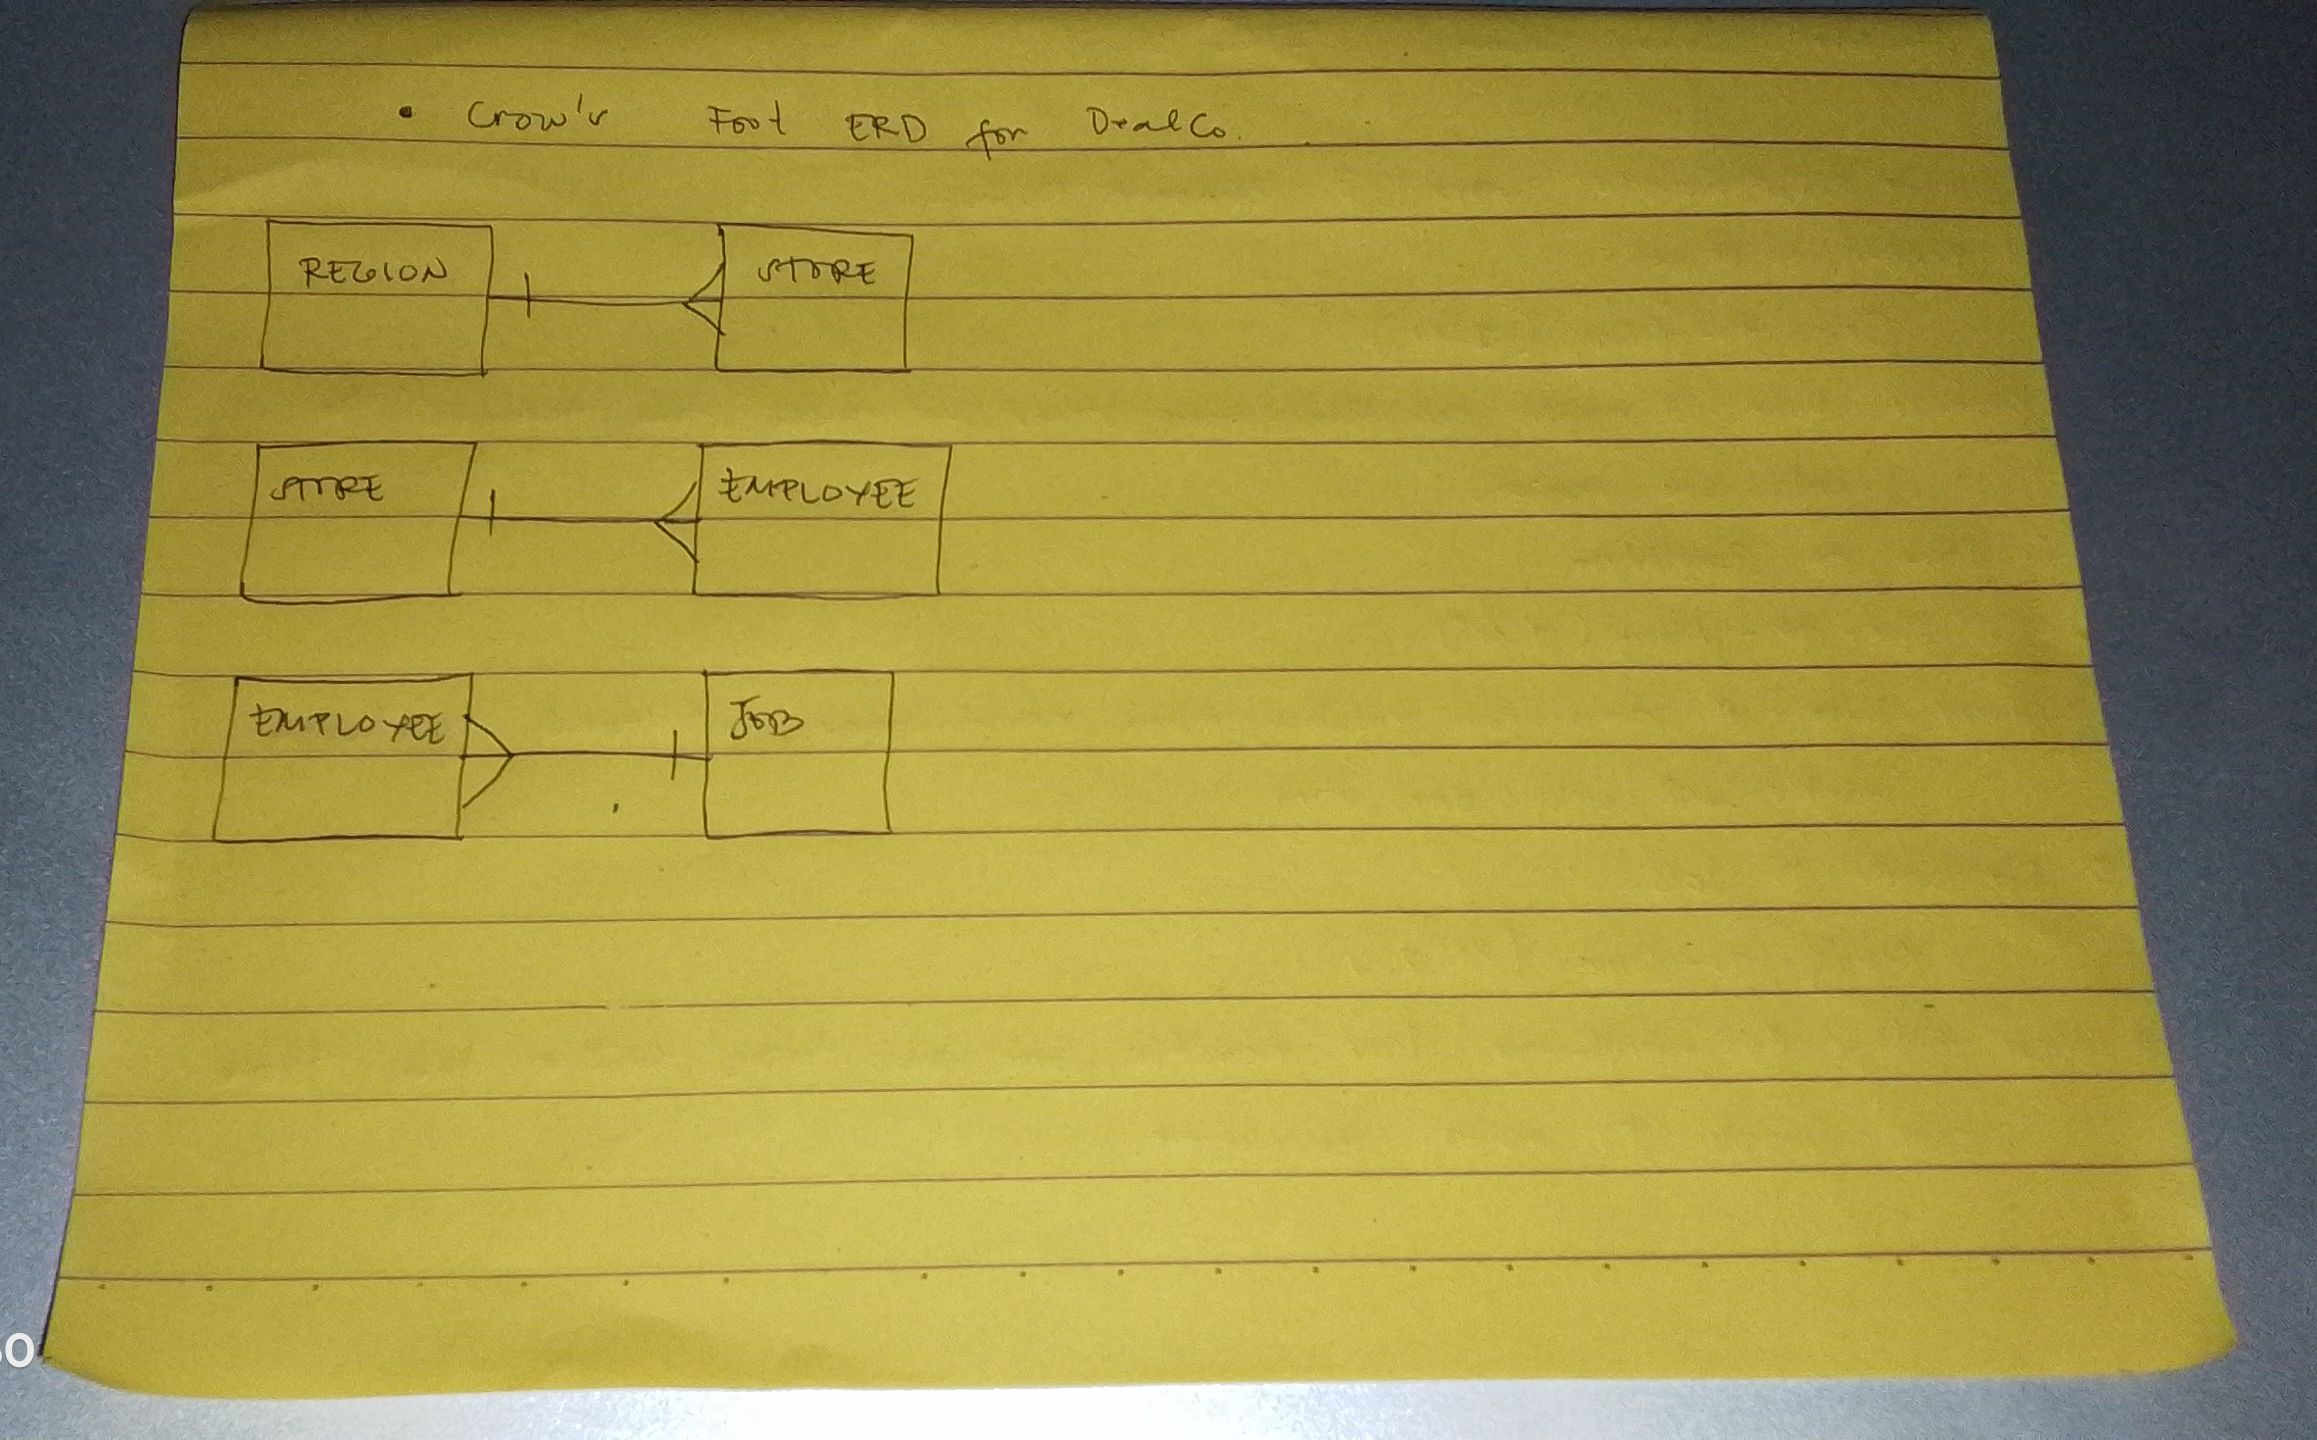 • Crow's Foot ERD for DealCo.
REGION STORE
STORE EMPLOYEE
EMPLOYEE JOB